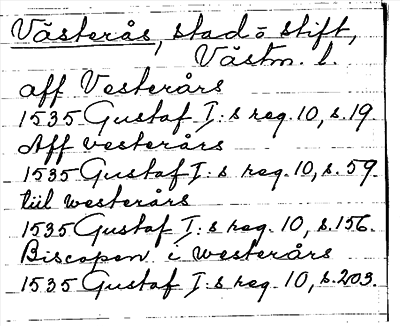 Västerås, stad o stift,
Västm. l.
aff Vesterårs
1535 Gustaf I:s reg. 10, s. 19.
Aff vesterårs
1535 Gustaf I:s reg. 10, s. 59.
tiil westerårs
1535 Gustaf I:s reg. 10, s. 156.
Biscopen i westerårs
1535 Gustaf I:s reg. 10, s. 203.